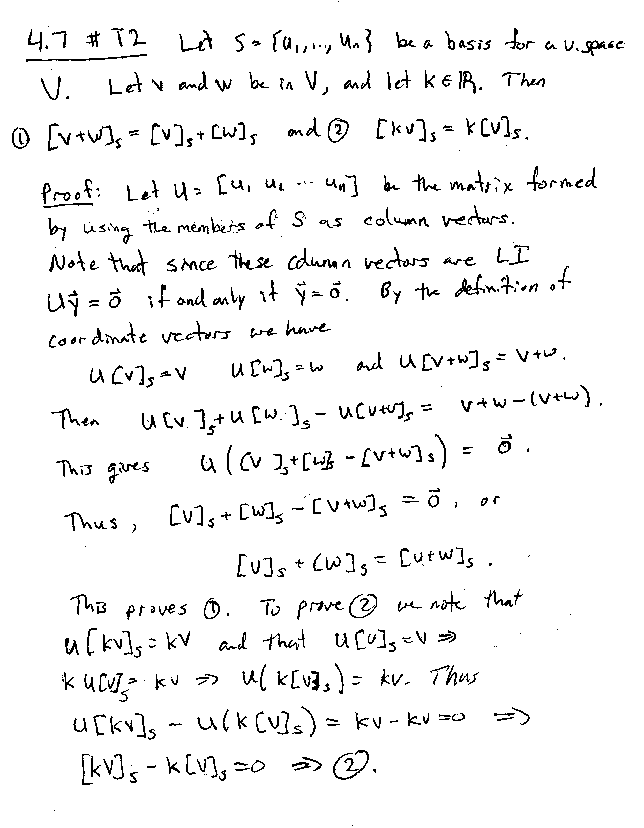 4.7 # T2 Let S = {u₁,..., uₙ} be a basis for a v. space
V. Let v and w be in V, and let k ∈ ℝ. Then
① [v+w]ₛ = [v]ₛ + [w]ₛ and ② [kv]ₛ = k[v]ₛ.
Proof: Let U = [u₁ u₂ ... uₙ] be the matrix formed
by using the members of S as column vectors.
Note that since these column vectors are LI
Uy⃗ = 0⃗ if and only if y⃗ = 0⃗. By the definition of
coordinate vectors we have
U[v]ₛ = v U[w]ₛ = w and U[v+w]ₛ = v+w.
Then U[v]ₛ + U[w]ₛ - U[v+w]ₛ = v+w-(v+w).
This gives U([v]ₛ + [w]ₛ - [v+w]ₛ) = 0⃗.
Thus, [v]ₛ + [w]ₛ - [v+w]ₛ = 0⃗, or
[v]ₛ + [w]ₛ = [v+w]ₛ.
This proves ①. To prove ② we note that
U[kv]ₛ = kv and that U[v]ₛ = v ⇒
kU[v]ₛ = kv ⇒ U(k[v]ₛ) = kv. Thus
U[kv]ₛ - U(k[v]ₛ) = kv - kv = 0 ⇒
[kv]ₛ - k[v]ₛ = 0 ⇒ ②.